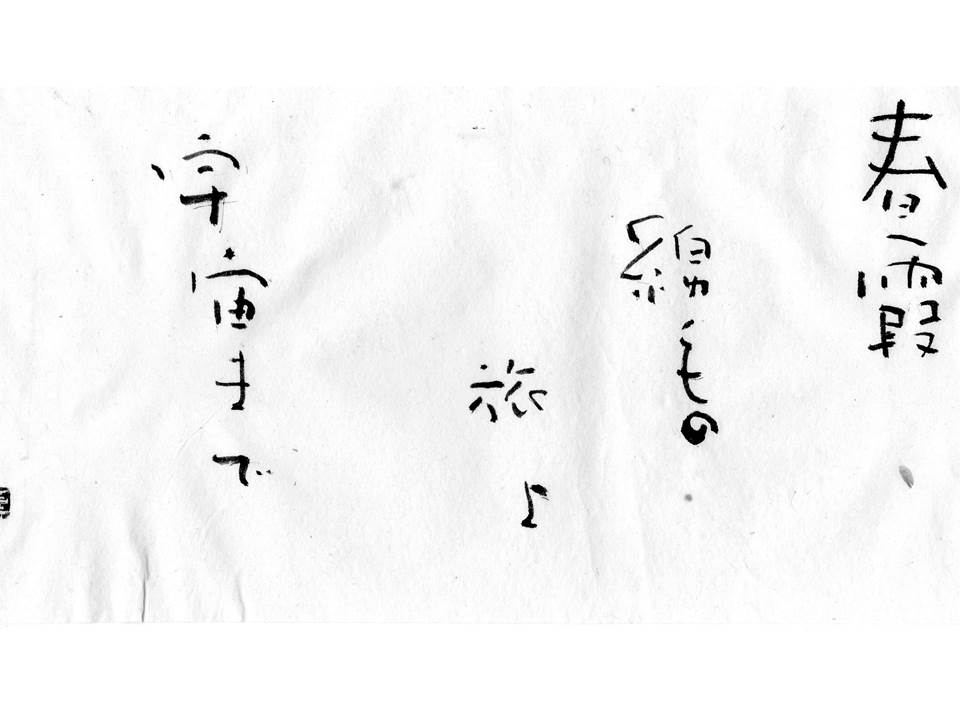 春霞
綿毛の
旅よ
宇宙まで